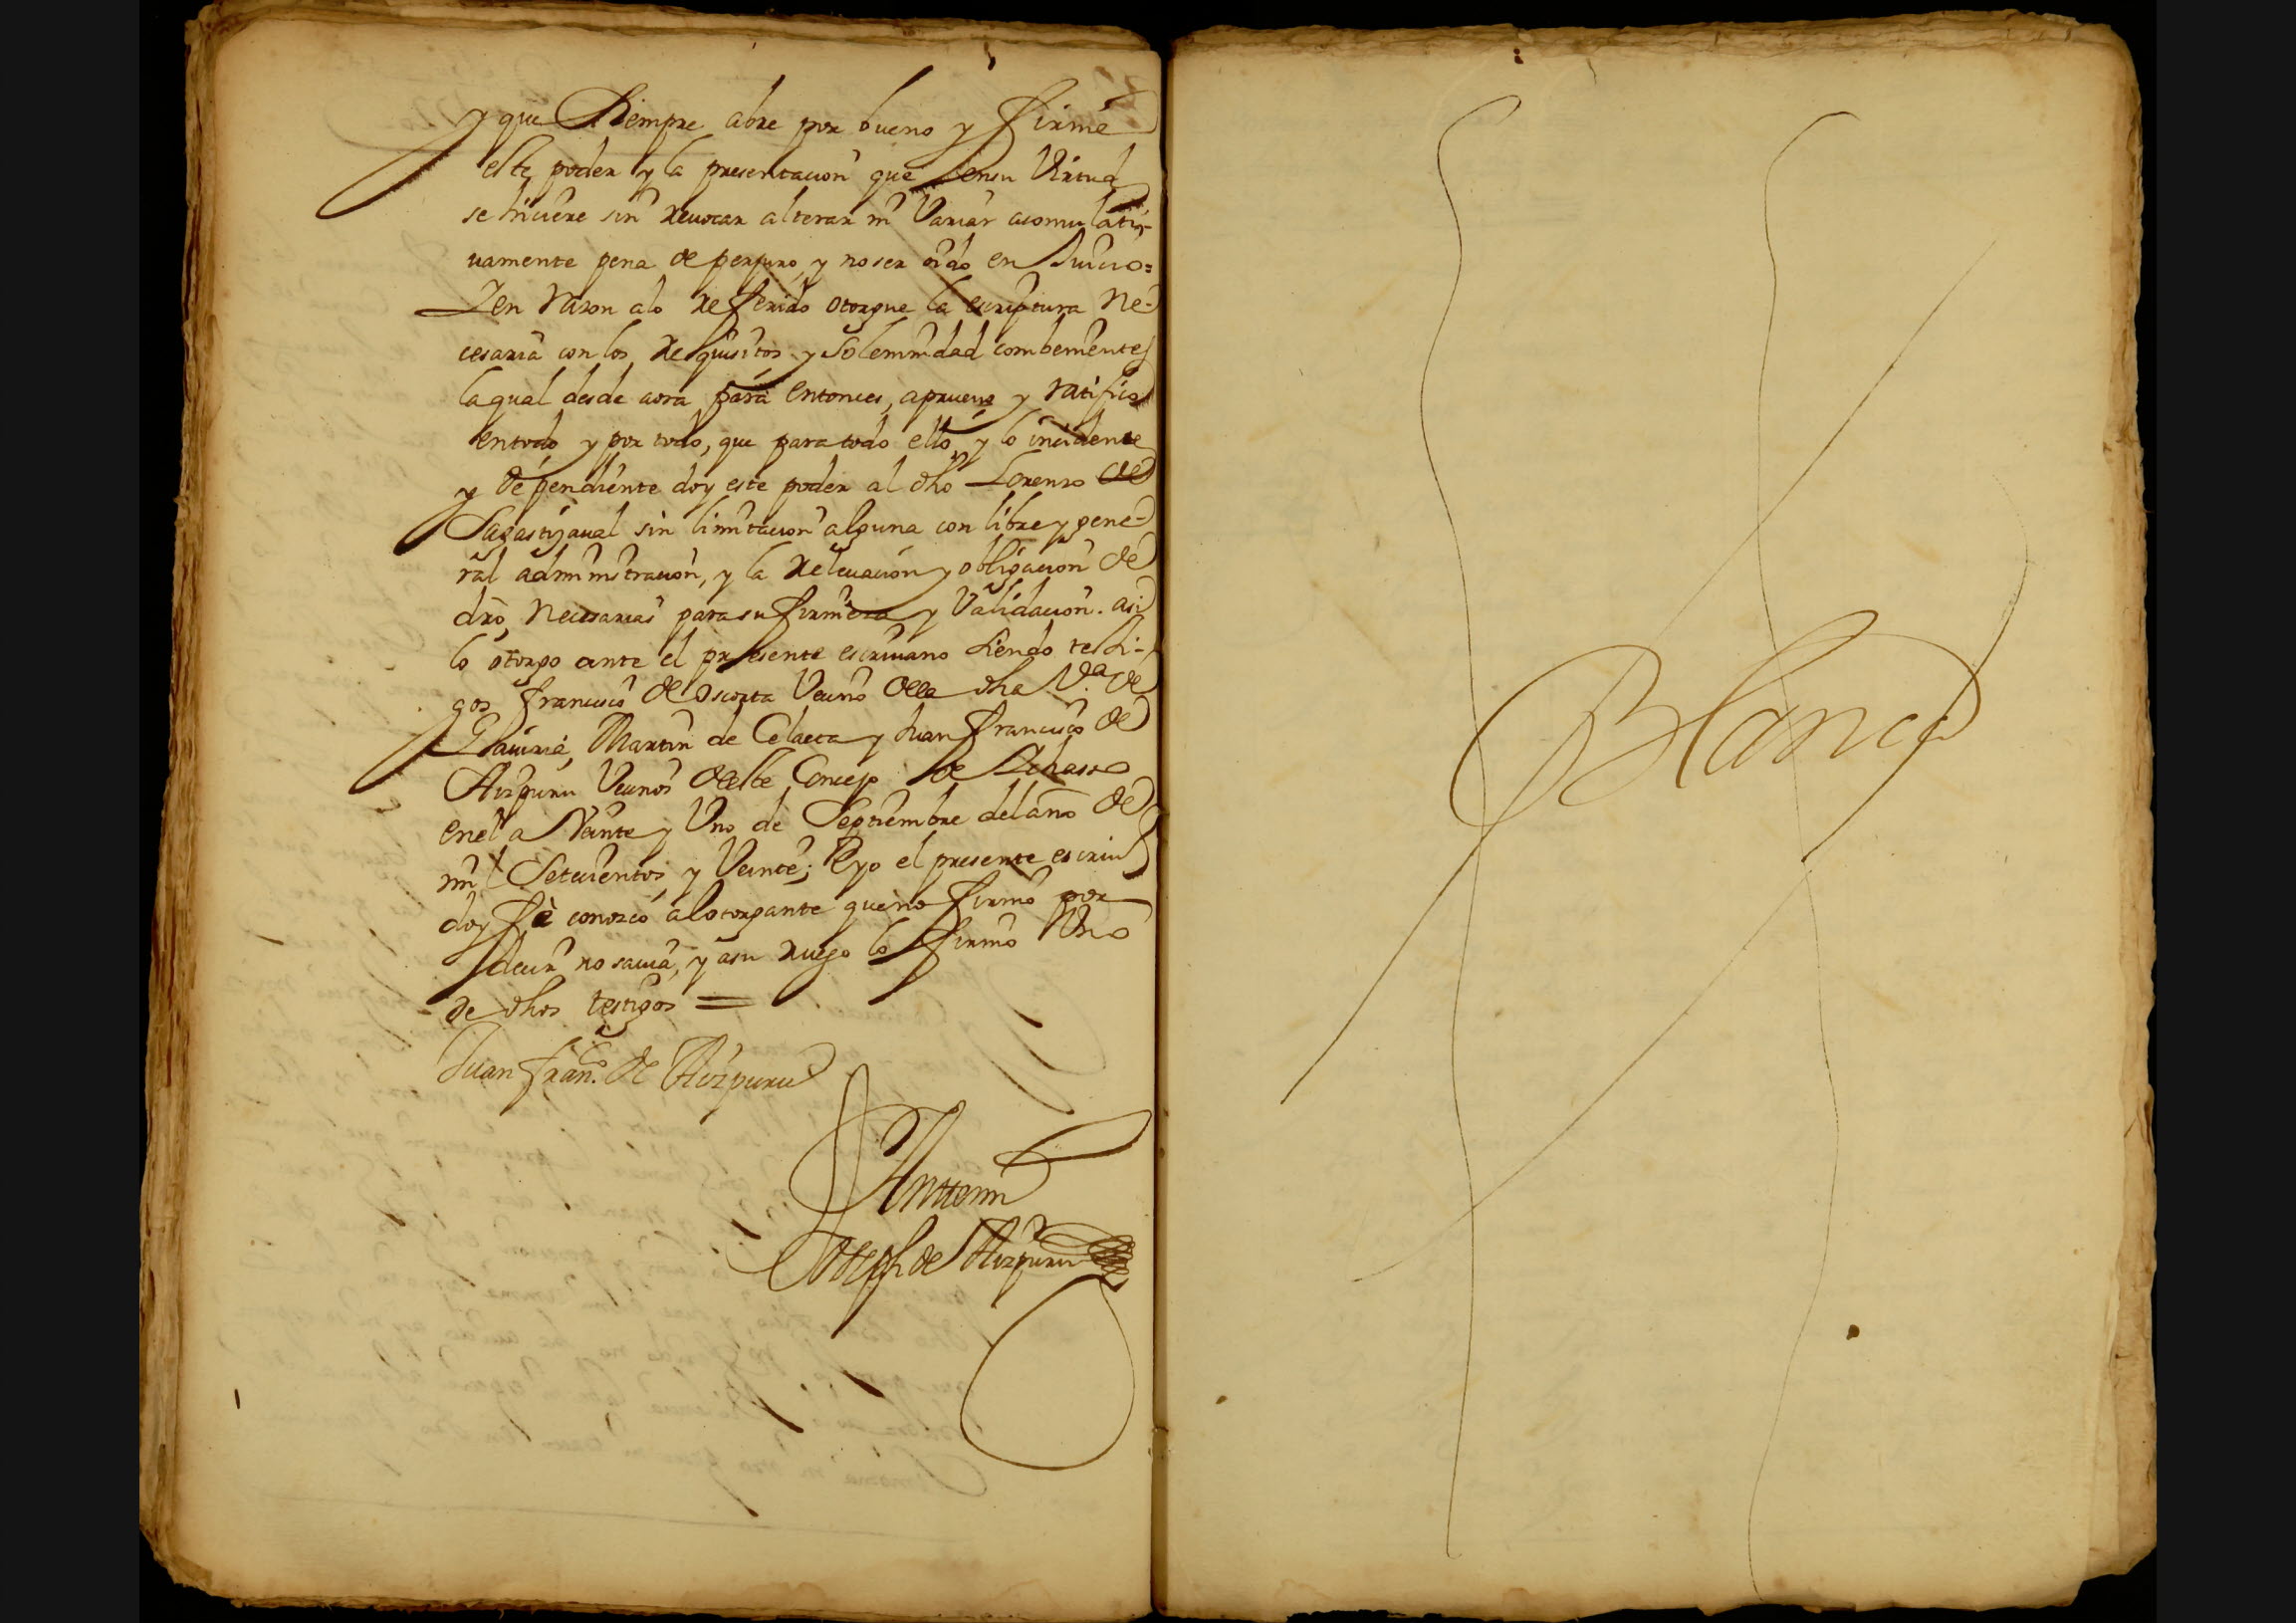 y que Siempre abre por bueno y firme
este poder y la presentacion que en su Virtud
se hiciere sin revocar alterar ni Variar acomulati-
vamente pena de perjuro, y no ser oido en Juicio=
Y en razon a lo referido otorgue la escriptura Ne-
cesaria con los requisitos y Solemnidad combenientes
la qual desde aora para entonces, apruevo y ratifico
en todo y por todo, que para todo ello, y lo incidente
y dependiente doy este poder al dho Lorenzo de
Sagastiçaval sin limitacion alguna con libre y gene-
ral administracion, y la relevacion y obligacion de
dro, necesarias para su firmeza y Validacion. asi
lo otorgo ante el presente escrivano Siendo testi-
gos francisco de Oscorta Vecino de la dha V.ª de
Martin de Celaeta y Juan francisco de
Aizpuru Vecinos deste Concejo de
en el a Veinte y Uno de Septiembre del año de
mil Setecientos y Veinte; E yo el presente escriv.º
doy fè conozco al otorgante que no firmó por
decir no savia, y a su ruego lo firmó Uno
de dhos testigos =
Juan fran.co de Aizpuru
Antte mi
Joseph de Aizpuru
Blanco